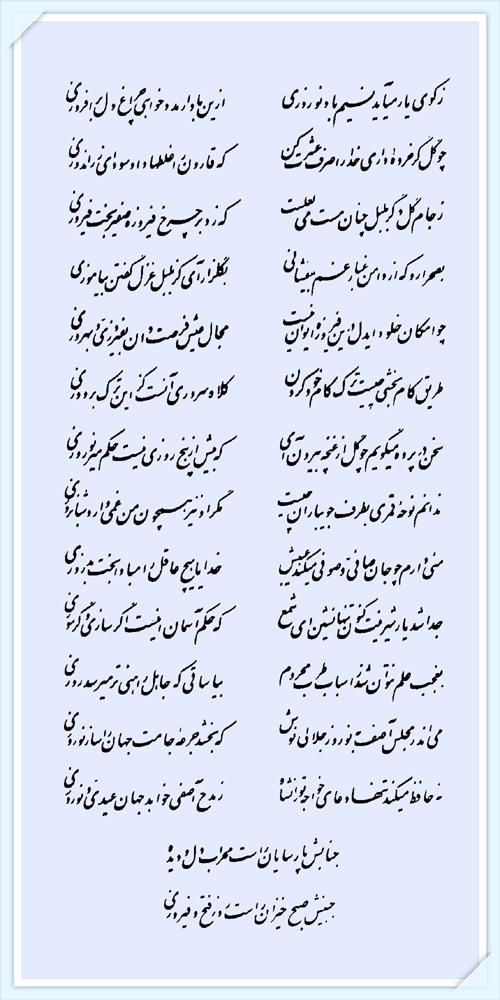 ز کوی یار می‌آید نسیم باد نوروزی از این باد ار مدد خواهی چراغ دل برافروزی
چو گل گر خرده‌ای داری خدا را صرف عشرت کن که قارون را غلط‌ها داد سودای زراندوزی
ز جام گل دگر بلبل چنان مست می لعلست که زد بر چرخ فیروزه صفیر تخت فیروزی
به صحرا رو که از دامن غبار غم بیفشانی به گلزار آی کز بلبل غزل گفتن بیاموزی
چو امکان خلود ای دل در این فیروزه ایوان نیست مجال عیش فرصت دان به فیروزی و بهروزی
طریق کام بخشی چیست ترک کام خود کردن کلاه سروری آنست کز این ترک بردوزی
سخن در پرده می‌گویم چو گل از غنچه بیرون آی که بیش از پنج روزی نیست حکم میر نوروزی
ندانم نوحه قمری به طرف جویباران چیست مگر او نیز همچون من غمی دارد شبانروزی
می‌ای دارم چو جان صافی و صوفی می‌کند عیبش خدایا هیچ عاقل را مبادا بخت بد روزی
جدا شد یار شیرینت کنون تنها نشین ای شمع که حکم آسمان اینست اگر سازی و گر سوزی
به عجب علم نتوان شد ز اسباب طرب محروم بیا ساقی که جاهل را هنی‌تر می‌رسد روزی
می اندر مجلس آصف به نوروز جلالی نوش که بخشد جرعه جامت جهان را ساز نوروزی
نه حافظ می‌کند تنها دعای خواجه تورانشاه ز مدح آصفی خواهد جهان عیدی و نوروزی
جنابش پارسایان راست محراب دل و دیده
جبینش صبح خیزان راست روز فتح و فیروزی